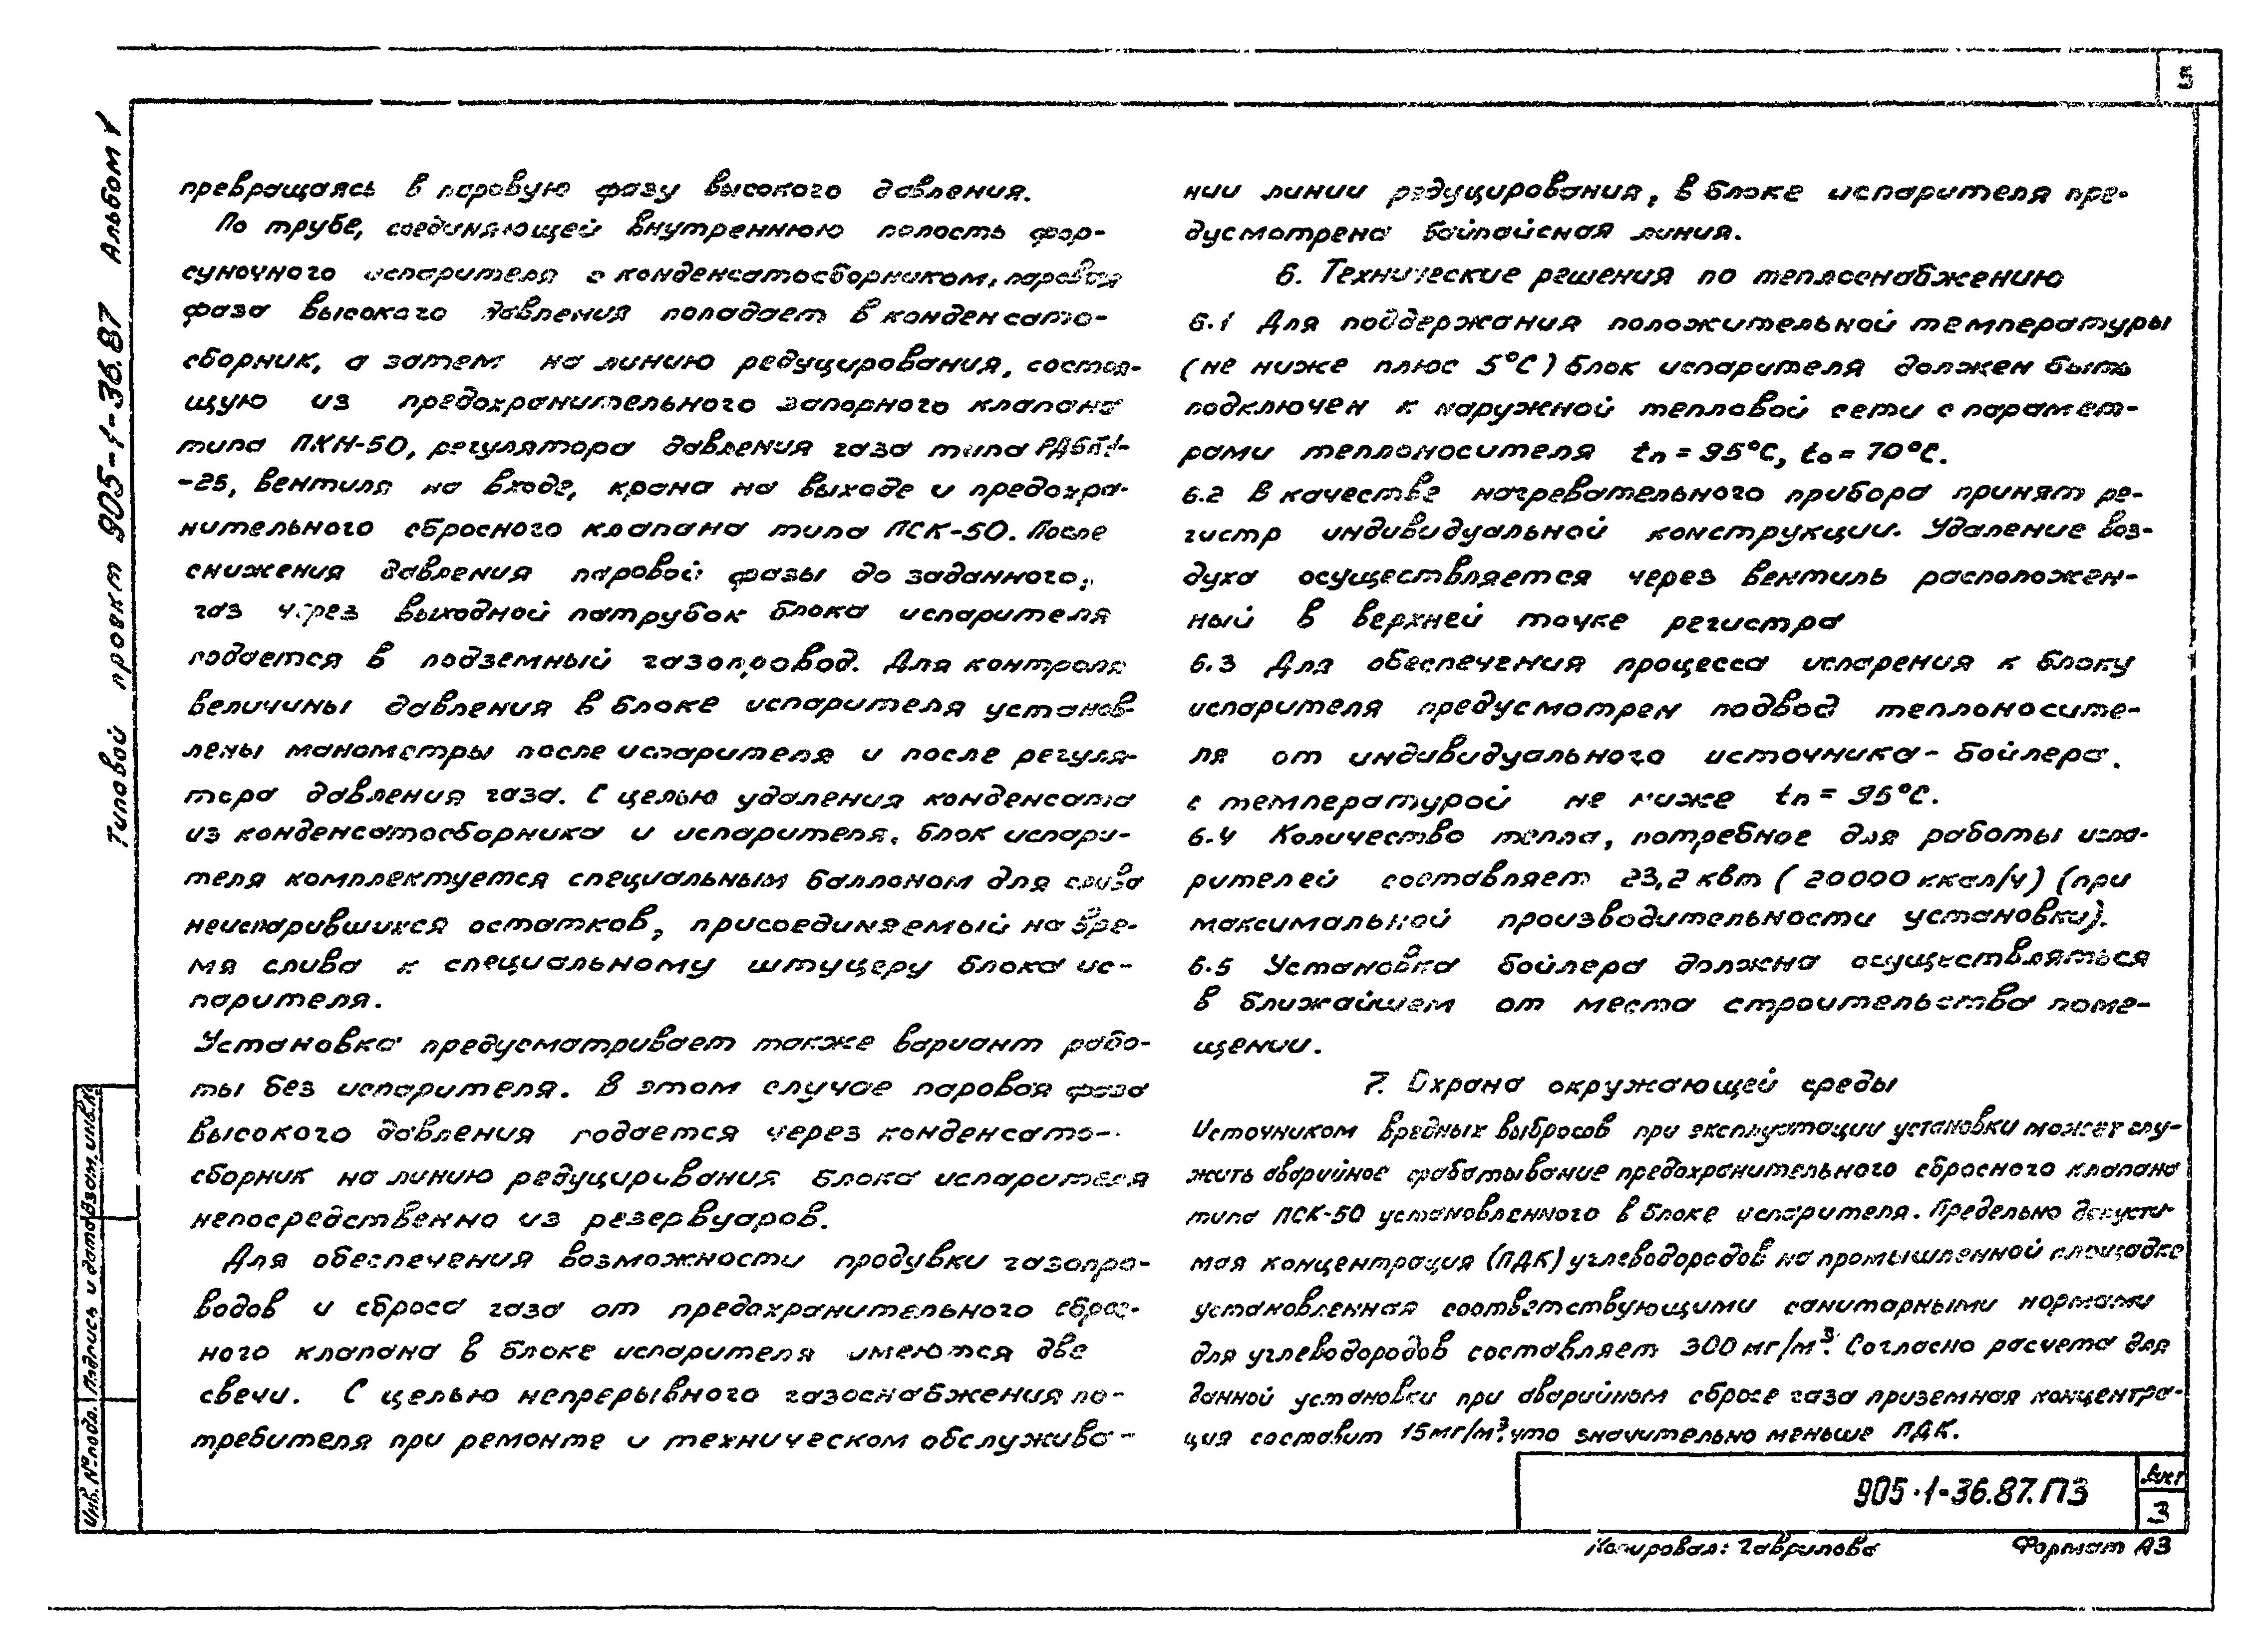 5
Типовой проект 905-1-36.87 Альбом V
превращаясь в паровую фазу высокого давления.
По трубе, соединяющей внутреннюю полость фор-
суночного испарителя с конденсатосборником, паровая
фаза высокого давления попадает в конденсато-
сборник, а затем на линию редуцирования, состоя-
щую из предохранительного запорного клапана
типа ПКН-50, регулятора давления газа типа
-25, вентиля на входе, крана на выходе и предохра-
нительного сбросного клапана типа ПСК-50. После
снижения давления паровой фазы до заданного,
газ через выходной патрубок блока испарителя
подается в подземный газопровод. Для контроля
величины давления в блоке испарителя установ-
лены манометры после испарителя и после регуля-
тора давления газа. С целью удаления конденсата
из конденсатосборника и испарителя, блок испари-
теля комплектуется специальным баллоном для слива
неиспарившихся остатков, присоединяемый на вре-
мя слива к специальному штуцеру блока ис-
парителя.
Установка предусматривает также вариант рабо-
ты без испарителя. В этом случае паровая фаза
высокого давления подается через конденсато-
сборник на линию редуцирования блока испарителя
непосредственно из резервуаров.
Для обеспечения возможности продувки газопро-
водов и сброса газа от предохранительного сброс-
ного клапана в блоке испарителя имеются две
свечи. С целью непрерывного газоснабжения по-
требителя при ремонте и техническом обслужива-
нии линии редуцирования, в блоке испарителя пре-
дусмотрена байпасная линия.
6. Технические решения по теплоснабжению
6.1 Для поддержания положительной температуры
(не ниже плюс 5°С) блок испарителя должен быть
подключен к наружной тепловой сети с парамет-
рами теплоносителя tп = 95°С, tо = 70°С.
6.2 В качестве нагревательного прибора принят ре-
гистр индивидуальной конструкции. Удаление воз-
духа осуществляется через вентиль расположен-
ный в верхней точке регистра
6.3 Для обеспечения процесса испарения к блоку
испарителя предусмотрен подвод теплоносите-
ля от индивидуального источника - бойлера.
с температурой не ниже tп = 95°С.
6.4 Количество тепла, потребное для работы испа-
рителей составляет 23,2 квт (20000 ккал/ч) (при
максимальной производительности установки).
6.5 Установка бойлера должна осуществляться
в ближайшем от места строительства поме-
щении.
7. Охрана окружающей среды
Источником вредных выбросов при эксплуатации установки может слу-
жить аварийное срабатывание предохранительного сбросного клапана
типа ПСК-50 установленного в блоке испарителя. Предельно допусти-
мая концентрация (ПДК) углеводородов на промышленной площадке
установленная соответствующими санитарными нормами
для углеводородов составляет 300 мг/м³. Согласно расчета для
данной установки при аварийном сбросе газа приземная концентра-
ция составит 15 мг/м³, что значительно меньше ПДК.
Инв. № подл. Подпись и дата Взам. инв. №
905-1-36.87.ПЗ
Лист
3
Копировал: Гаврилова Формат А3